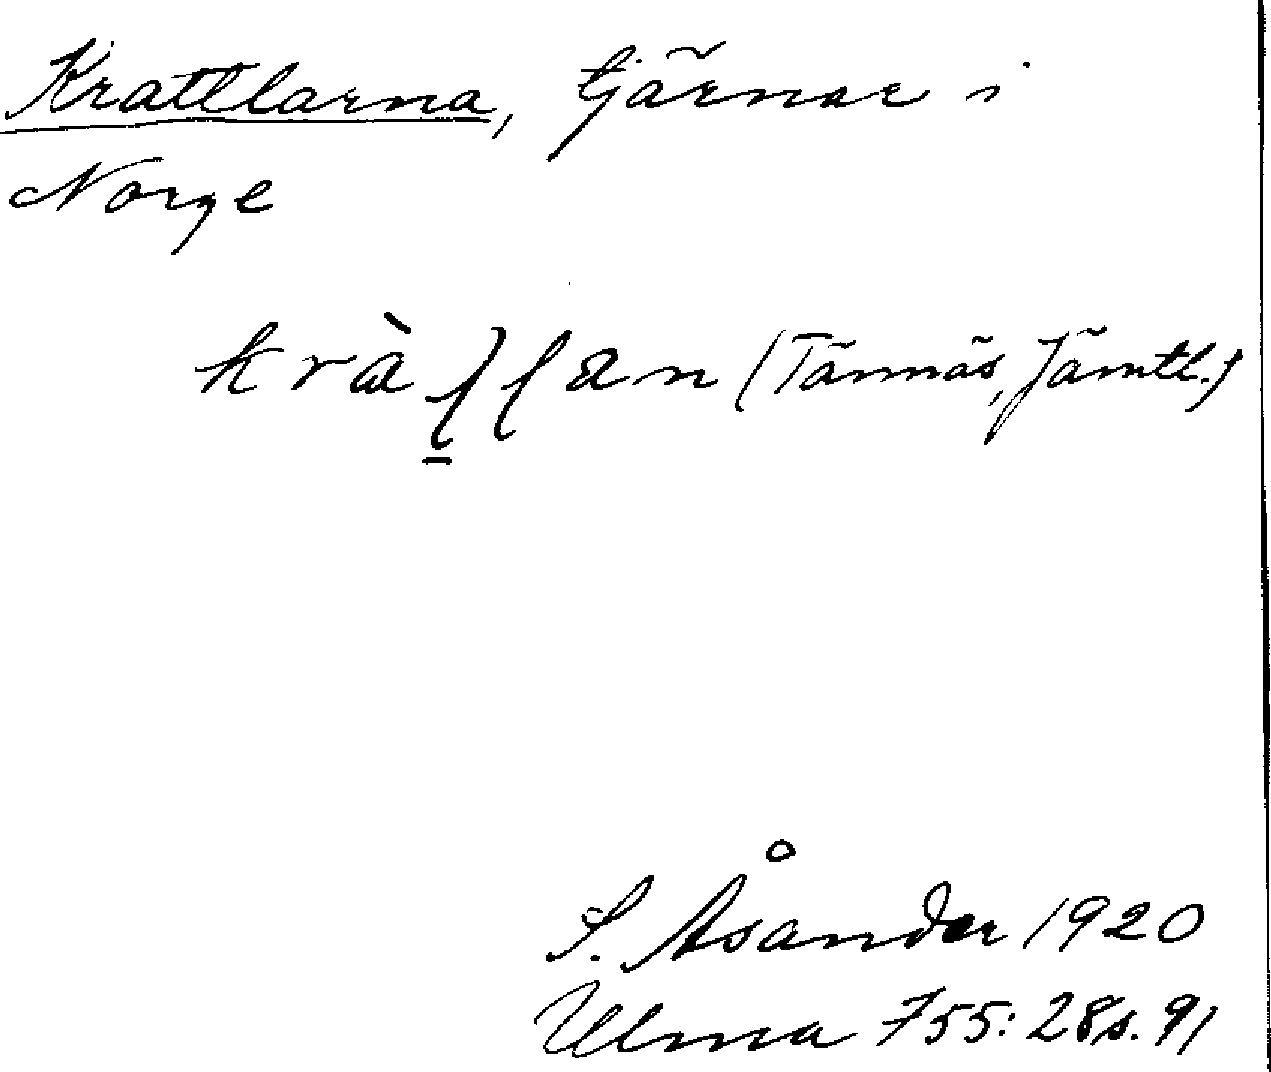 Krattlarna, tjärnar i
Norge
(Tännäs, Jämtl.)
S. Åsander 1920
Ulma 755: 28 s. 91